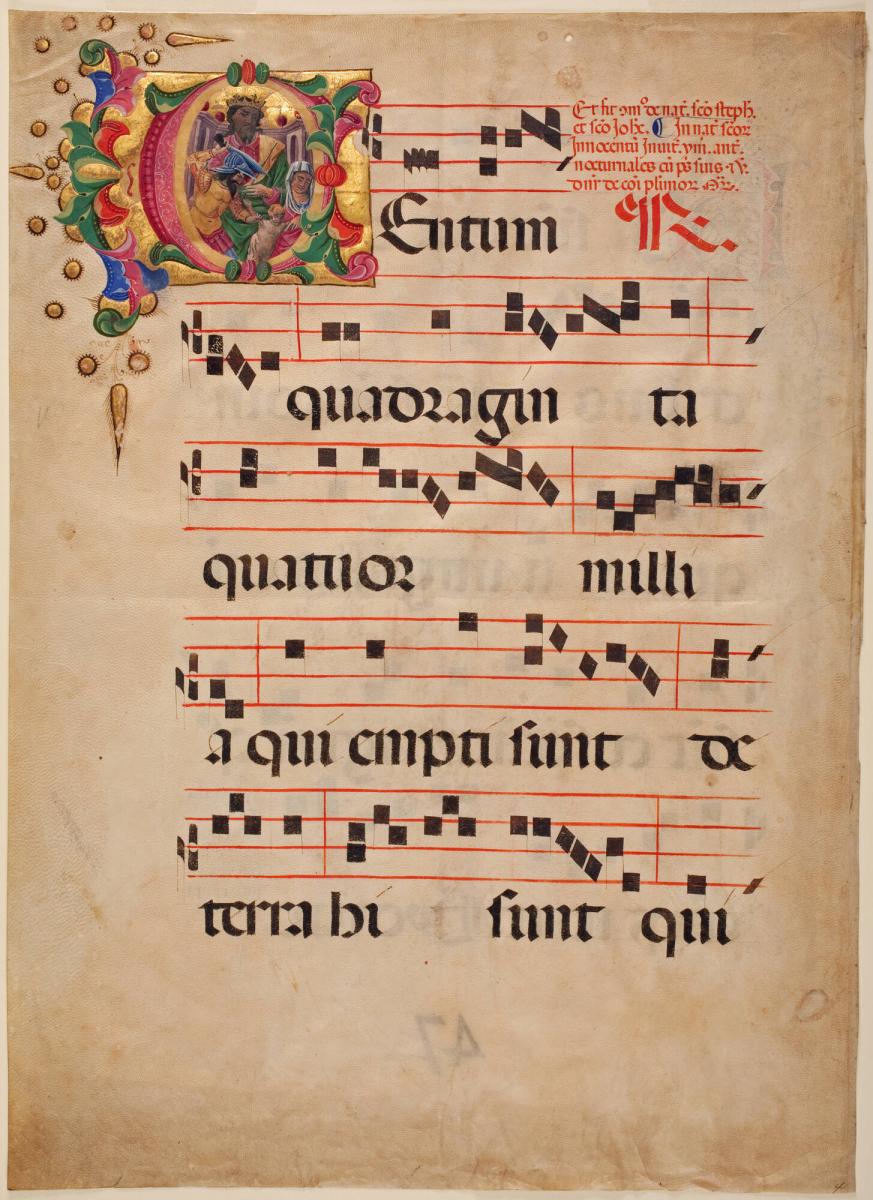 Et fit 9m° de nat. sc̄o steph.
et sc̄o Johe. In nat scōr
Innocentū Inuit. vm̄. ant̄.
nocturnales cū ps̄ suis
de cōi plimor
CEntum R.
quadragin ta
quatuor milli
a qui empti sunt de
terra hi sunt qui
47